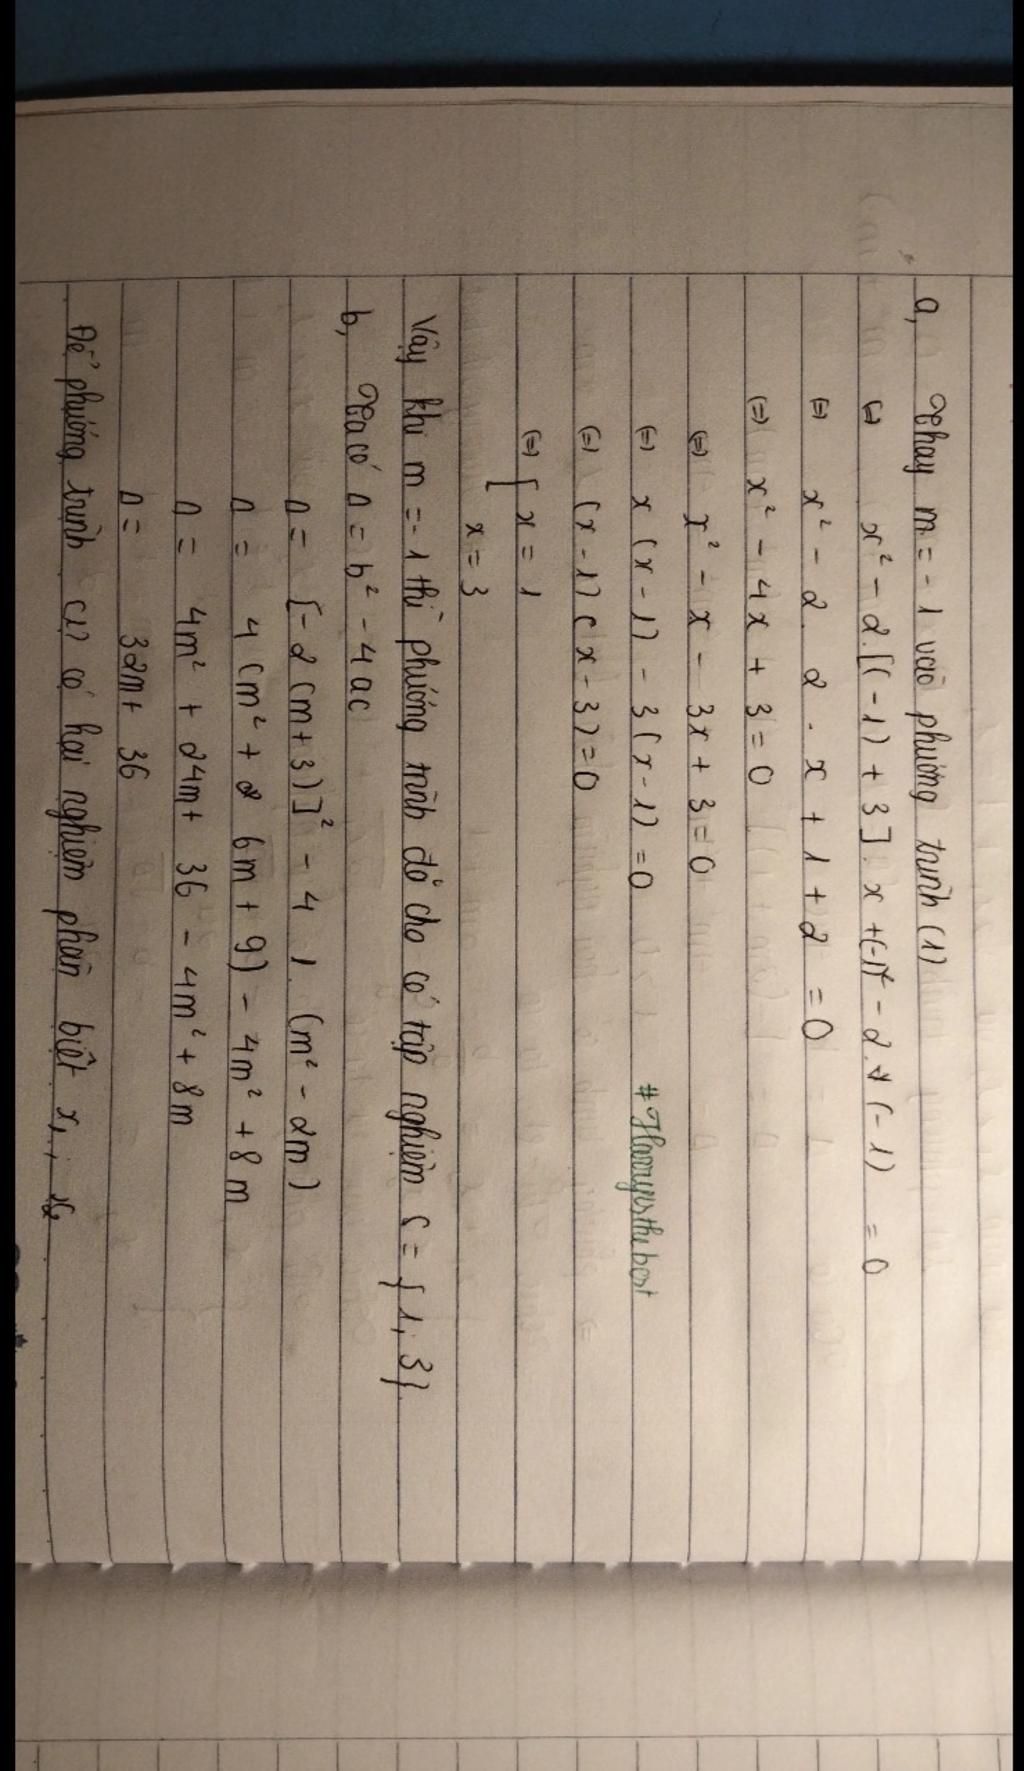 a, Thay m = -1 vào phương trình (1)
(=) x² - 2.[(-1) + 3]. x + (-1)² - 2. (-1) = 0
(=) x² - 2. 2 . x + 1 + 2 = 0
(=) x² - 4x + 3 = 0
(=) x² - x - 3x + 3 = 0
(=) x (x - 1) - 3 (x - 1) = 0
(=) (x - 1) (x - 3) = 0
(=) [ x = 1
x = 3
#Harryisthebest
Vậy khi m = -1 thì phương trình đã cho có tập nghiệm S = { 1; 3}.
b, Ta có Δ = b² - 4ac
Δ = [-2 (m+3)]² - 4 . 1. (m² - 2m)
Δ = 4 (m² + 2 6m + 9) - 4m² + 8m
Δ = 4m² + 24m + 36 - 4m² + 8m
Δ = 32m + 36
Để phương trình (1) có hai nghiệm phân biệt x₁, x₂